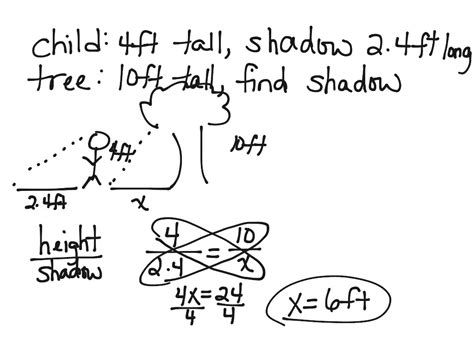 child: 4ft tall, shadow 2.4ft long
tree: 10ft tall, find shadow
4ft
10ft
2.4ft
x
height/shadow 4/2.4 = 10/x
4x/4 = 24/4
x = 6ft